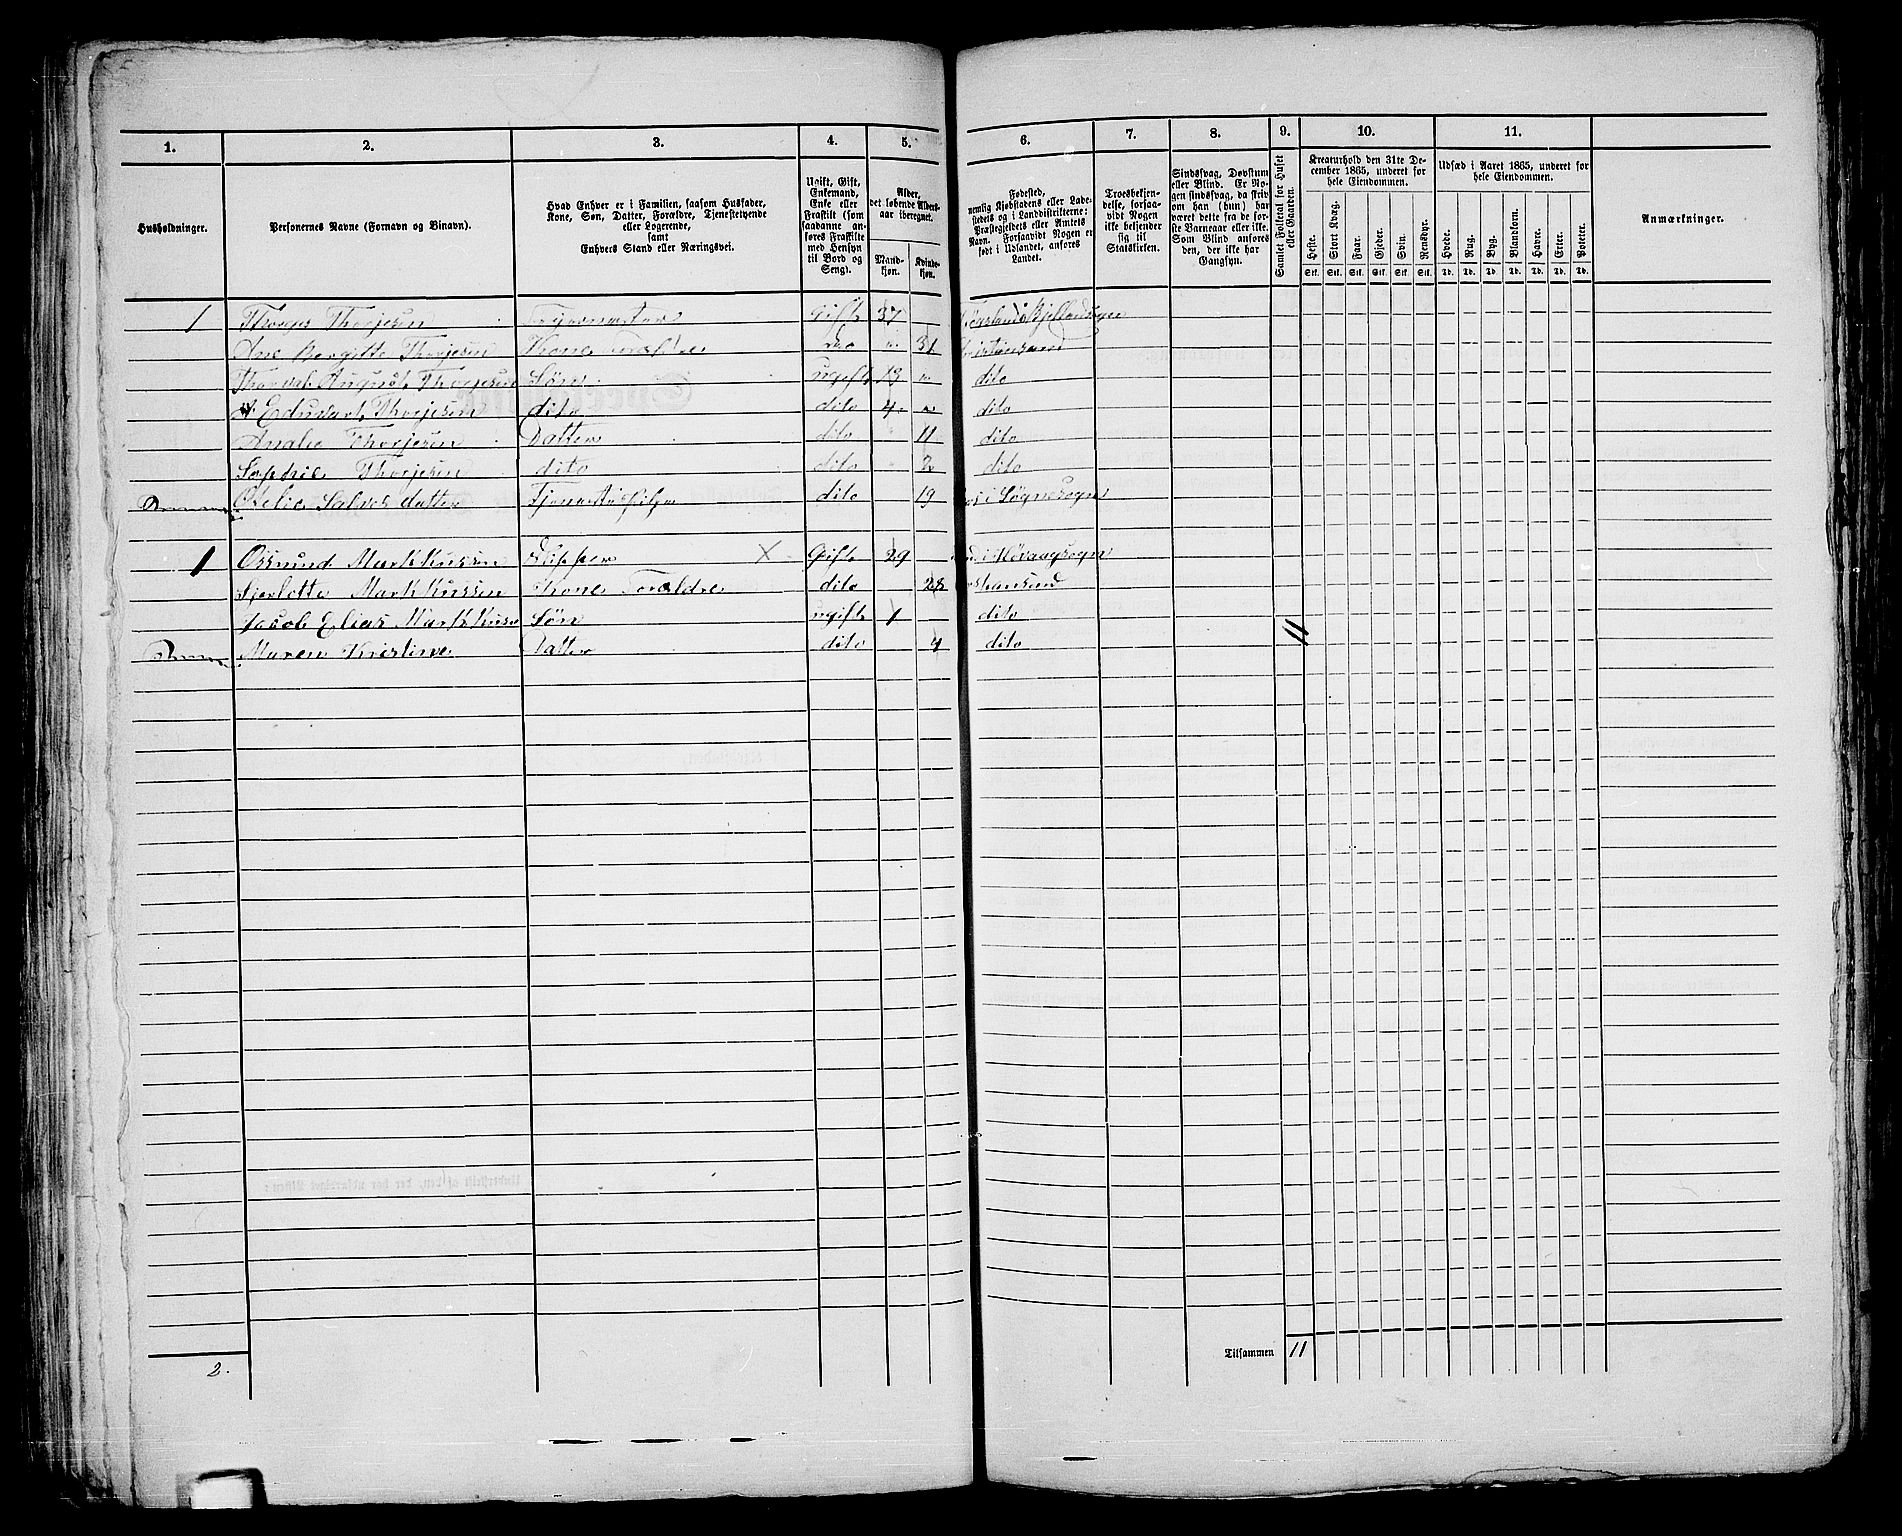 1. 2. 3. 4. 5. 6. 7. 8. 9. 10. 11.
Husholdninger.
Personernes Navne (Fornavn og Binavn).
Hvad Enhver er i Familien, saasom Husfader, Kone, Søn, Datter, Forældre, Tjenestetyende eller Logerende, samt Enhvers Stand eller Næringsvei.
Ugift, Gift, Enkemand, Enke eller Fraskilt (som saadanne anføres Fraskilte med Hensyn til Bord og Seng).
Alder, det løbende Aldersaar iberegnet.
Mandkjøn. Kvindekjøn.
Fødested, nemlig Kjøbstadens eller Ladestedets og i Landdistrikterne: Præstegjeldets eller Amtets Navn. Forsaavidt Nogen er født i Udlandet, anføres Landet.
Troesbekjendelse, forsaavidt Nogen ikke bekjender sig til Statskirken.
Sindssvag, Døvstum eller Blind. Er Nogen sindssvag, da skriv om han (hun) har været dette fra de første Barneaar eller ikke. Som Blind anføres den, der ikke har Gangsyn.
Samlet Folketal for Huset eller Gaarden.
Kreaturhold den 31te December 1865, underet for hele Eiendommen.
Heste. Stort Kvæg. Faar. Gjeder. Svin. Rensdyr.
Stk. Stk. Stk. Stk. Stk. Stk.
Udsæd i Aaret 1865, underet for hele Eiendommen.
Hvede. Rug. Byg. Blandkorn. Havre. Erter. Poteter.
Td. Td. Td. Td. Td. Td. Td.
Anmærkninger.
1 Thorjesen Gift 37
Ane Bergitte Thorjesen Kone Forældre 31
August Thorjesen Søn ugift 13 dito
Eduart Thorjesen dito dito 4 dito
Thorjesen Datter dito 11 dito
Thorjesen dito dito 2 dito
datter dito 19 i Søgnesogn
1 Osmund Markkussen X Gift 29
Markkussen Kone Forældre dito 28
Jacob Elias Søn ugift 1 dito
Maren Kristine Datter dito 4 dito 11
2. Tilsammen 11